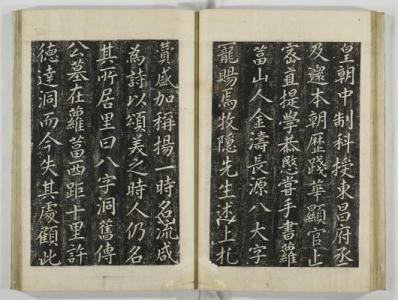 皇朝中制科授東昌府丞
及還本朝歷踐華顯官止
密直提學恭愍嘗手書蘿
葍山人金濤長源八大字
寵賜焉牧隱先生述上札
賛盛加稱揚一時名流咸
為詩以頌美之時人仍名
其所居里曰八字洞舊傳
公墓在蘿葍西距十里許
德達洞而今失其處顧此